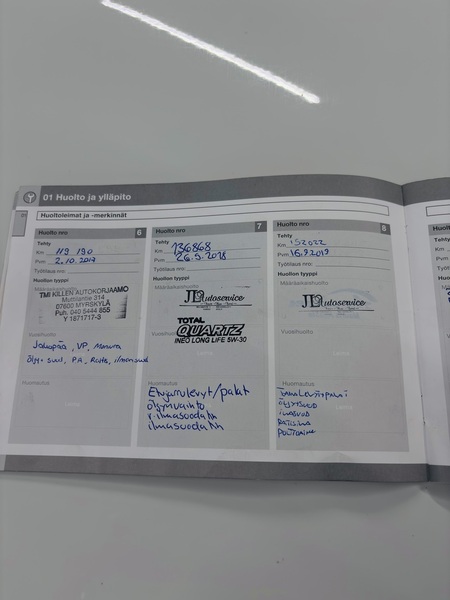 01 Huolto ja ylläpito
Huoltoleimat ja -merkinnät
Huolto nro 6
Tehty
Km 119 190
Pvm 2.10.2017
Työtilaus nro:
Huollon tyyppi
Määräaikaishuolto
TMI KILLEN AUTOKORJAAMO
Muttilantie 314
07600 MYRSKYLÄ
Puh. 040 5444 855
Y 1871717-3
Vuosihuolto
Jakopää, VP,
Öljy+ suod, PA,
Huomautus
Huolto nro 7
Tehty
Km 136868
Pvm 26.9.2018
Työtilaus nro:
Huollon tyyppi
Määräaikaishuolto
JP Autoservice
TOTAL
QUARTZ
INEO LONG LIFE 5W-30
Vuosihuolto
Huomautus
Etujarrulevyt/palat
öljynvaihto
ilmansuodatin
Huolto nro 8
Tehty
Km 152022
Pvm 16.9.2019
Työtilaus nro:
Huollon tyyppi
Määräaikaishuolto
JP Autoservice
Vuosihuolto
Huomautus
ÖLJY/SUOD
RAITISILMA
POLTTOAINE